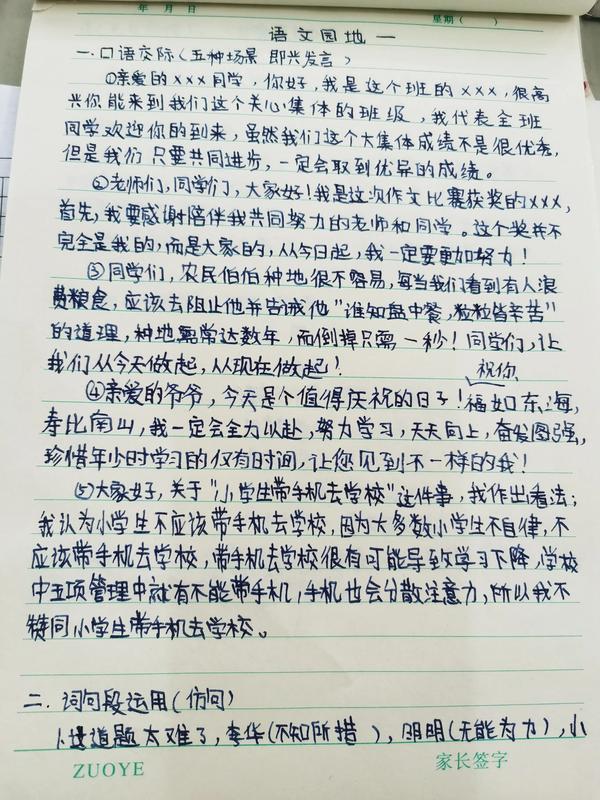 年 月 日 星期( )
语文园地一
一.口语交际(五种场景 即兴发言)
①亲爱的×××同学,你好,我是这个班的×××,很高
兴你能来到我们这个关心集体的班级,我代表全班
同学欢迎你的到来,虽然我们这个大集体成绩不是很优秀,
但是我们只要共同进步,一定会取到优异的成绩。
②老师们,同学们,大家好!我是这次作文比赛获奖的×××,
首先,我要感谢陪伴我共同努力的老师和同学。这个奖并不
完全是我的,而是大家的,从今日起,我一定要更加努力!
③同学们,农民伯伯种地很不容易,每当我们看到有人浪
费粮食,应该去阻止他并告诫他"谁知盘中餐,粒粒皆辛苦"
的道理,种地需常达数年,而倒掉只需一秒!同学们,让
我们从今天做起,从现在做起!
祝你
④亲爱的爷爷,今天是个值得庆祝的日子!福如东海,
寿比南山,我一定会全力以赴,努力学习,天天向上,奋发图强,
珍惜年少时学习的仅有时间,让您见到不一样的我!
⑤大家好,关于"小学生带手机去学校"这件事,我作出看法;
我认为小学生不应该带手机去学校,因为大多数小学生不自律,不
应该带手机去学校,带手机去学校很有可能导致学习下降,学校
中五项管理中就有不能带手机,手机也会分散注意力,所以我不
赞同小学生带手机去学校。
二.词句段运用(仿句)
1.这道题太难了,李华(不知所措),明明(无能为力),小
ZUOYE 家长签字